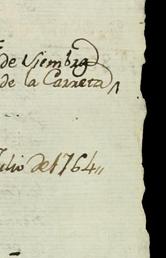 de Siembra
de la Carreta
Julio de 1764